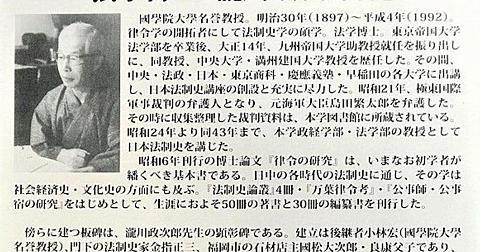 國學院大學名誉教授。明治30年(1897)～平成4年(1992)。
律令学の開拓者にして法制史学の碩学。法学博士。東京帝国大学
法学部を卒業後、大正14年、九州帝国大学助教授就任を振り出し
に、同教授、中央大学・満州建国大学教授を歴任した。その間、
中央・法政・日本・東京商科・慶應義塾・早稲田の各大学に出講
し、日本法制史講座の創設と充実に尽力した。昭和21年、極東国際
軍事裁判の弁護人となり、元海軍大臣島田繁太郎を弁護した。
その時に収集整理した裁判資料は、本学図書館に所蔵されている。
昭和24年より同43年まで、本学政経学部・法学部の教授として
日本法制史を講じた。
昭和6年刊行の博士論文『律令の研究』は、いまなお初学者が
繙くべき基本書である。日中の各時代の法制史に通じ、その学は
社会経済史・文化史の方面にも及ぶ。『法制史論叢』4冊・『万葉律令考』・『公事師・公事
宿の研究』をはじめとして、生涯におよそ50冊の著書と30冊の編纂書を刊行した。
傍らに建つ板碑は、瀧川政次郎先生の顕彰碑である。建立は後継者小林宏(國學院大學
名誉教授)、門下の法制史家金指正三、福岡市の石材店主國松大次郎・良康父子であり、